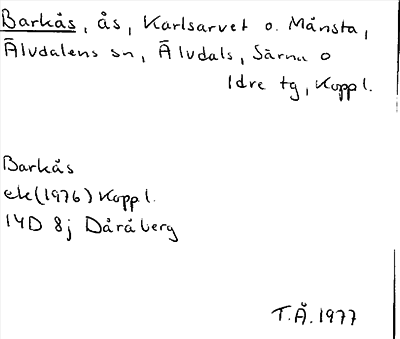 Barkås, ås, Karlsarvet o. Månsta,
Älvdalens sn, Älvdals, Särna o
Idre tg, Koppl.
Barkås
ek(1976) Koppl.
14D 8j Dåråberg
T.Å. 1977